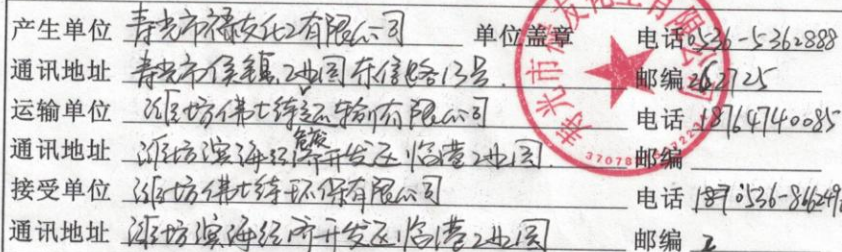 产生单位 寿光市禄友化工有限公司 单位盖章 电话 0536-5362888
通讯地址 寿光市侯镇工业园东信路13号 邮编 262725
运输单位 潍坊佛士特运输有限公司 电话 18764740085
通讯地址 潍坊滨海经济开发区临港工业园 邮编
接受单位 潍坊佛士特环保有限公司 电话 0536-866249
通讯地址 潍坊滨海经济开发区临港工业园 邮编
寿光市禄友化工有限公司